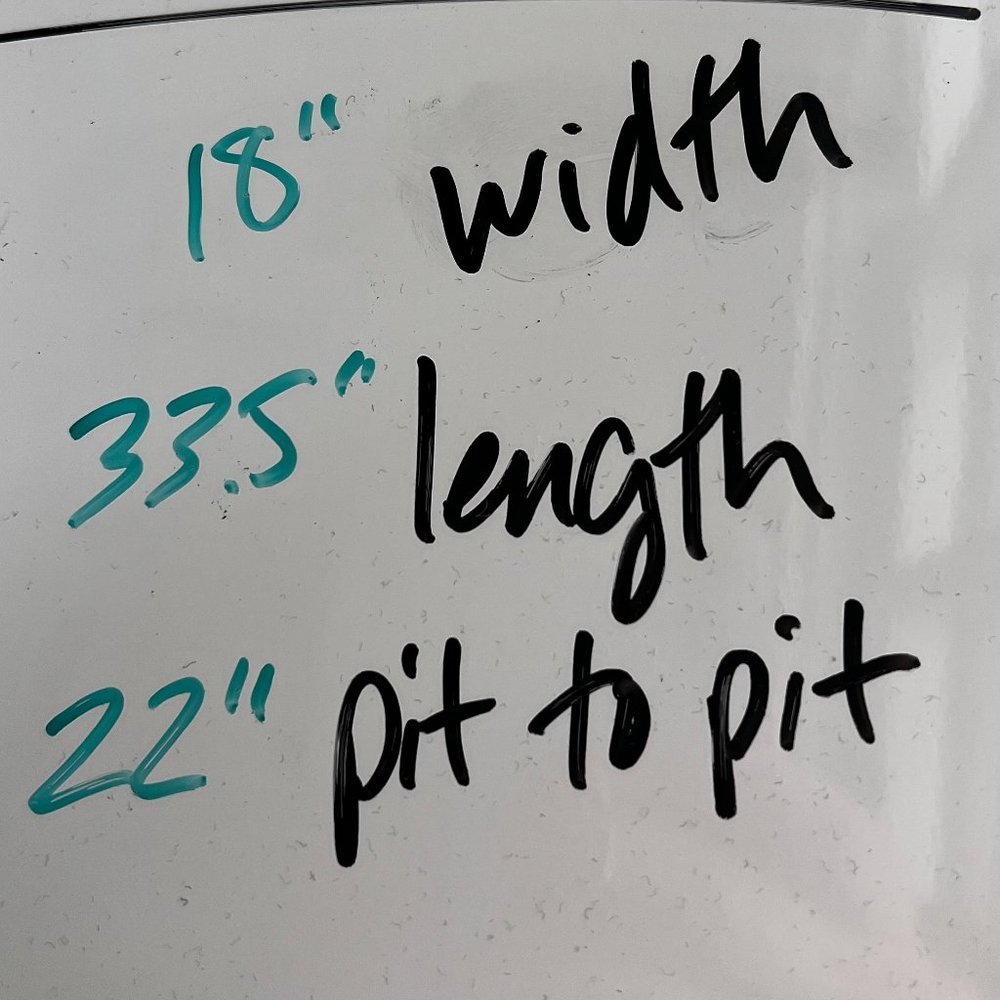 18" width
33.5" length
22" pit to pit